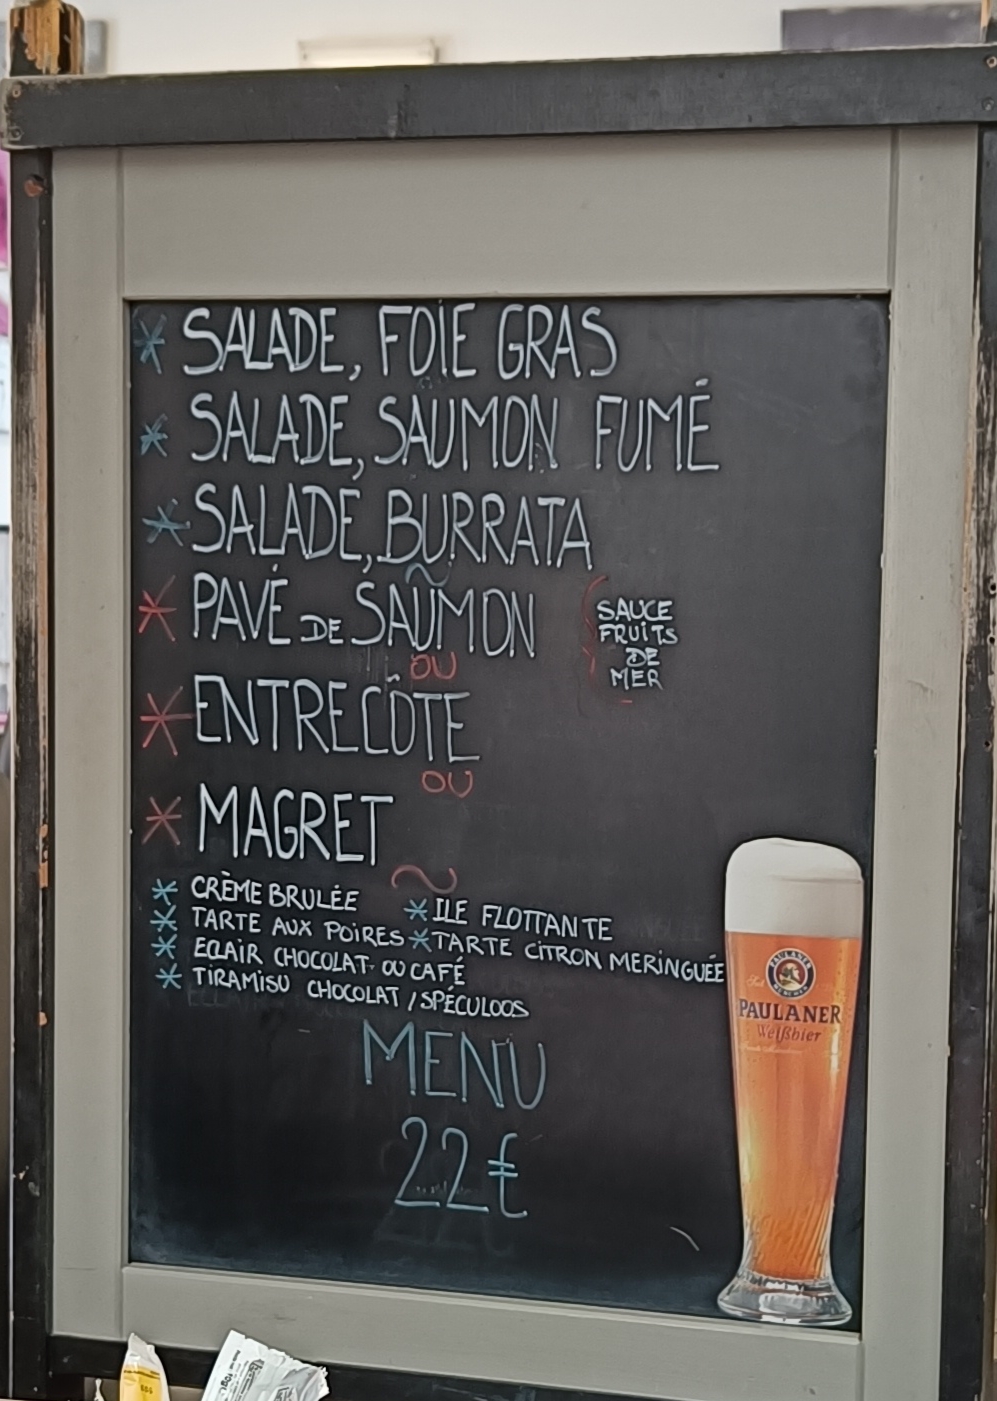 SALADE, FOIE GRAS
SALADE, SAUMON FUMÉ
SALADE, BURRATA
PAVÉ DE SAUMON
SAUCE
FRUITS
DE
MER
OU
ENTRECÔTE
OU
MAGRET
CRÈME BRULÉE
ILE FLOTTANTE
TARTE AUX POIRES
TARTE CITRON MERINGUÉE
ECLAIR CHOCOLAT OU CAFÉ
TIRAMISU CHOCOLAT / SPÉCULOOS
MENU
22€
PAULANER
MÜNCHEN
PAULANER
Weißbier